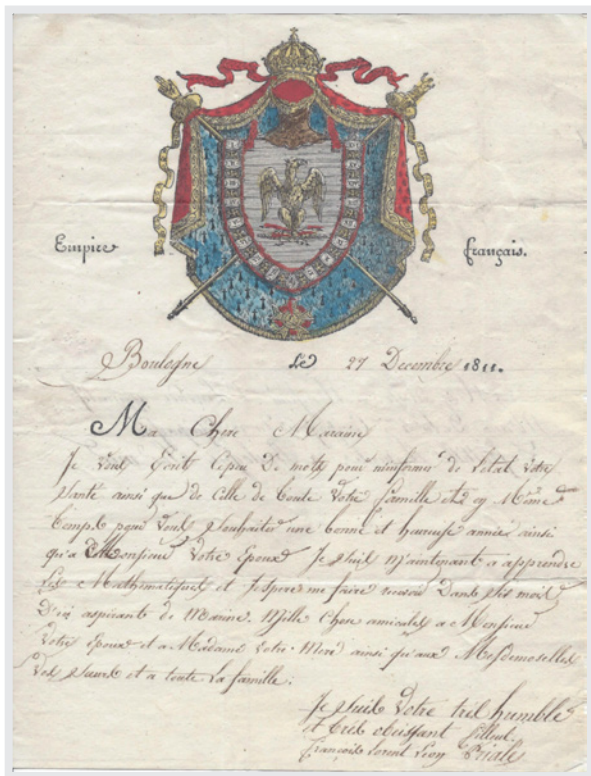 Empire français.
Boulogne Le 27 Decembre 1811.
Ma Chere Maraine
Je vous Ecrit Cepeu De mots pour minformer de letat Votre
Santé ainsi que de Celle de toute Votre famille et Même
Compt pour vous Souhaiter une bonne et heureuse année ainsi
qu'a Monsieur Votre Epoux Je Suis maintenant a apprendre
Les Mathematiques et Jespere me faire recevoir Dans Six mois
D'ici aspirant de Marine. Mille Chose amicales a Monsieur
Votre Epoux et a Madame Votre Mere ainsi qu'aux Mesdemoselles
Vos Sœurs et a toute La famille.
Je Suis Votre très humble
et très obeissant filleul.
francois Lorent Leon